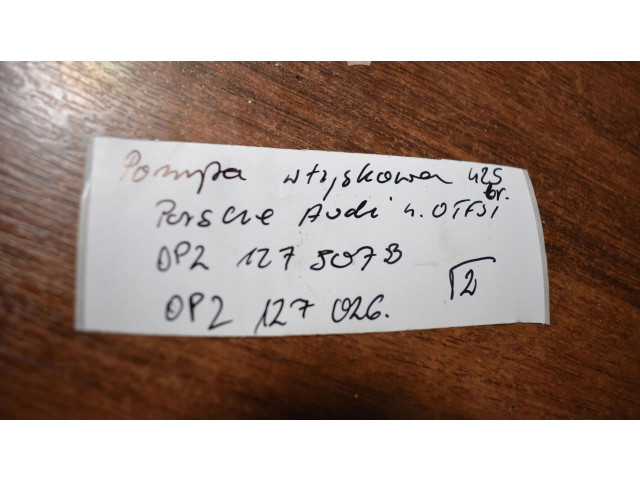 Pompa wtryskowa 425 br.
Porsche Audi 4.0TFSI
OP2 127 507B
OP2 127 026.
√2